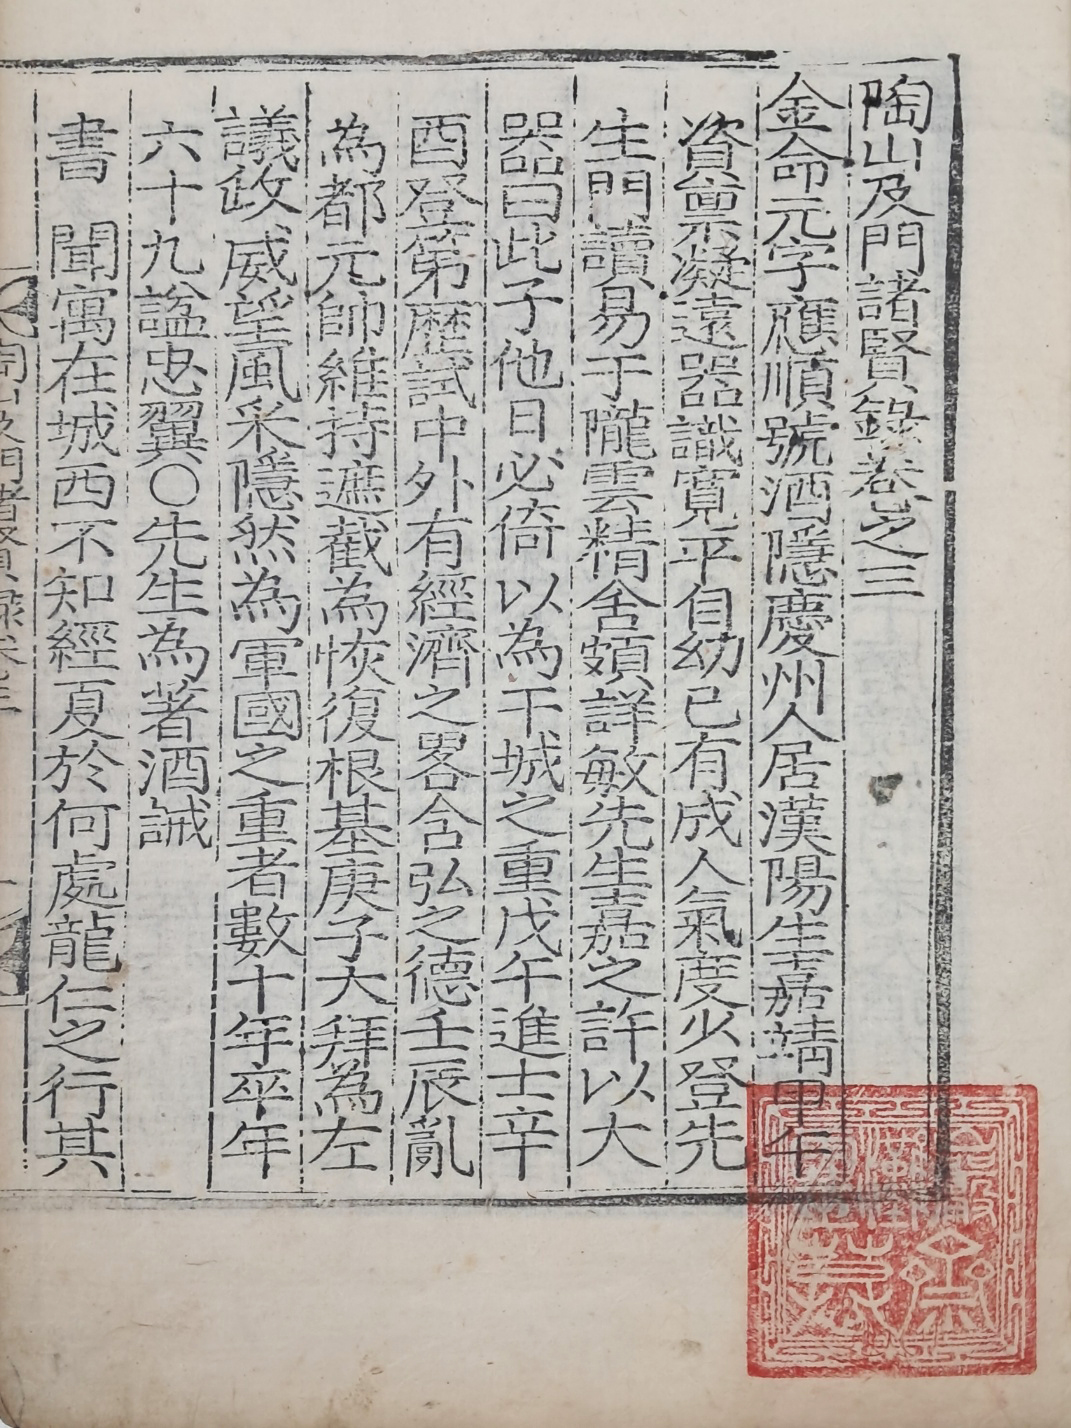 陶山及門諸賢錄卷之三
金命元字應順號酒隱慶州人居漢陽生嘉靖甲午
資稟凝遠器識寬平自幼已有成人氣度少登先
生門讀易于隴雲精舍頗詳敏先生嘉之許以大
器曰此子他日必倚以為干城之重戊午進士辛
酉登第歷試中外有經濟之畧含弘之德壬辰亂
為都元帥維持遮截為恢復根基庚子大拜為左
議政威望風采隱然為軍國之重者數十年卒年
六十九諡忠翼○先生為著酒誡
書 聞寓在城西不知經夏於何處龍仁之行其
陶山及門諸賢錄卷之三